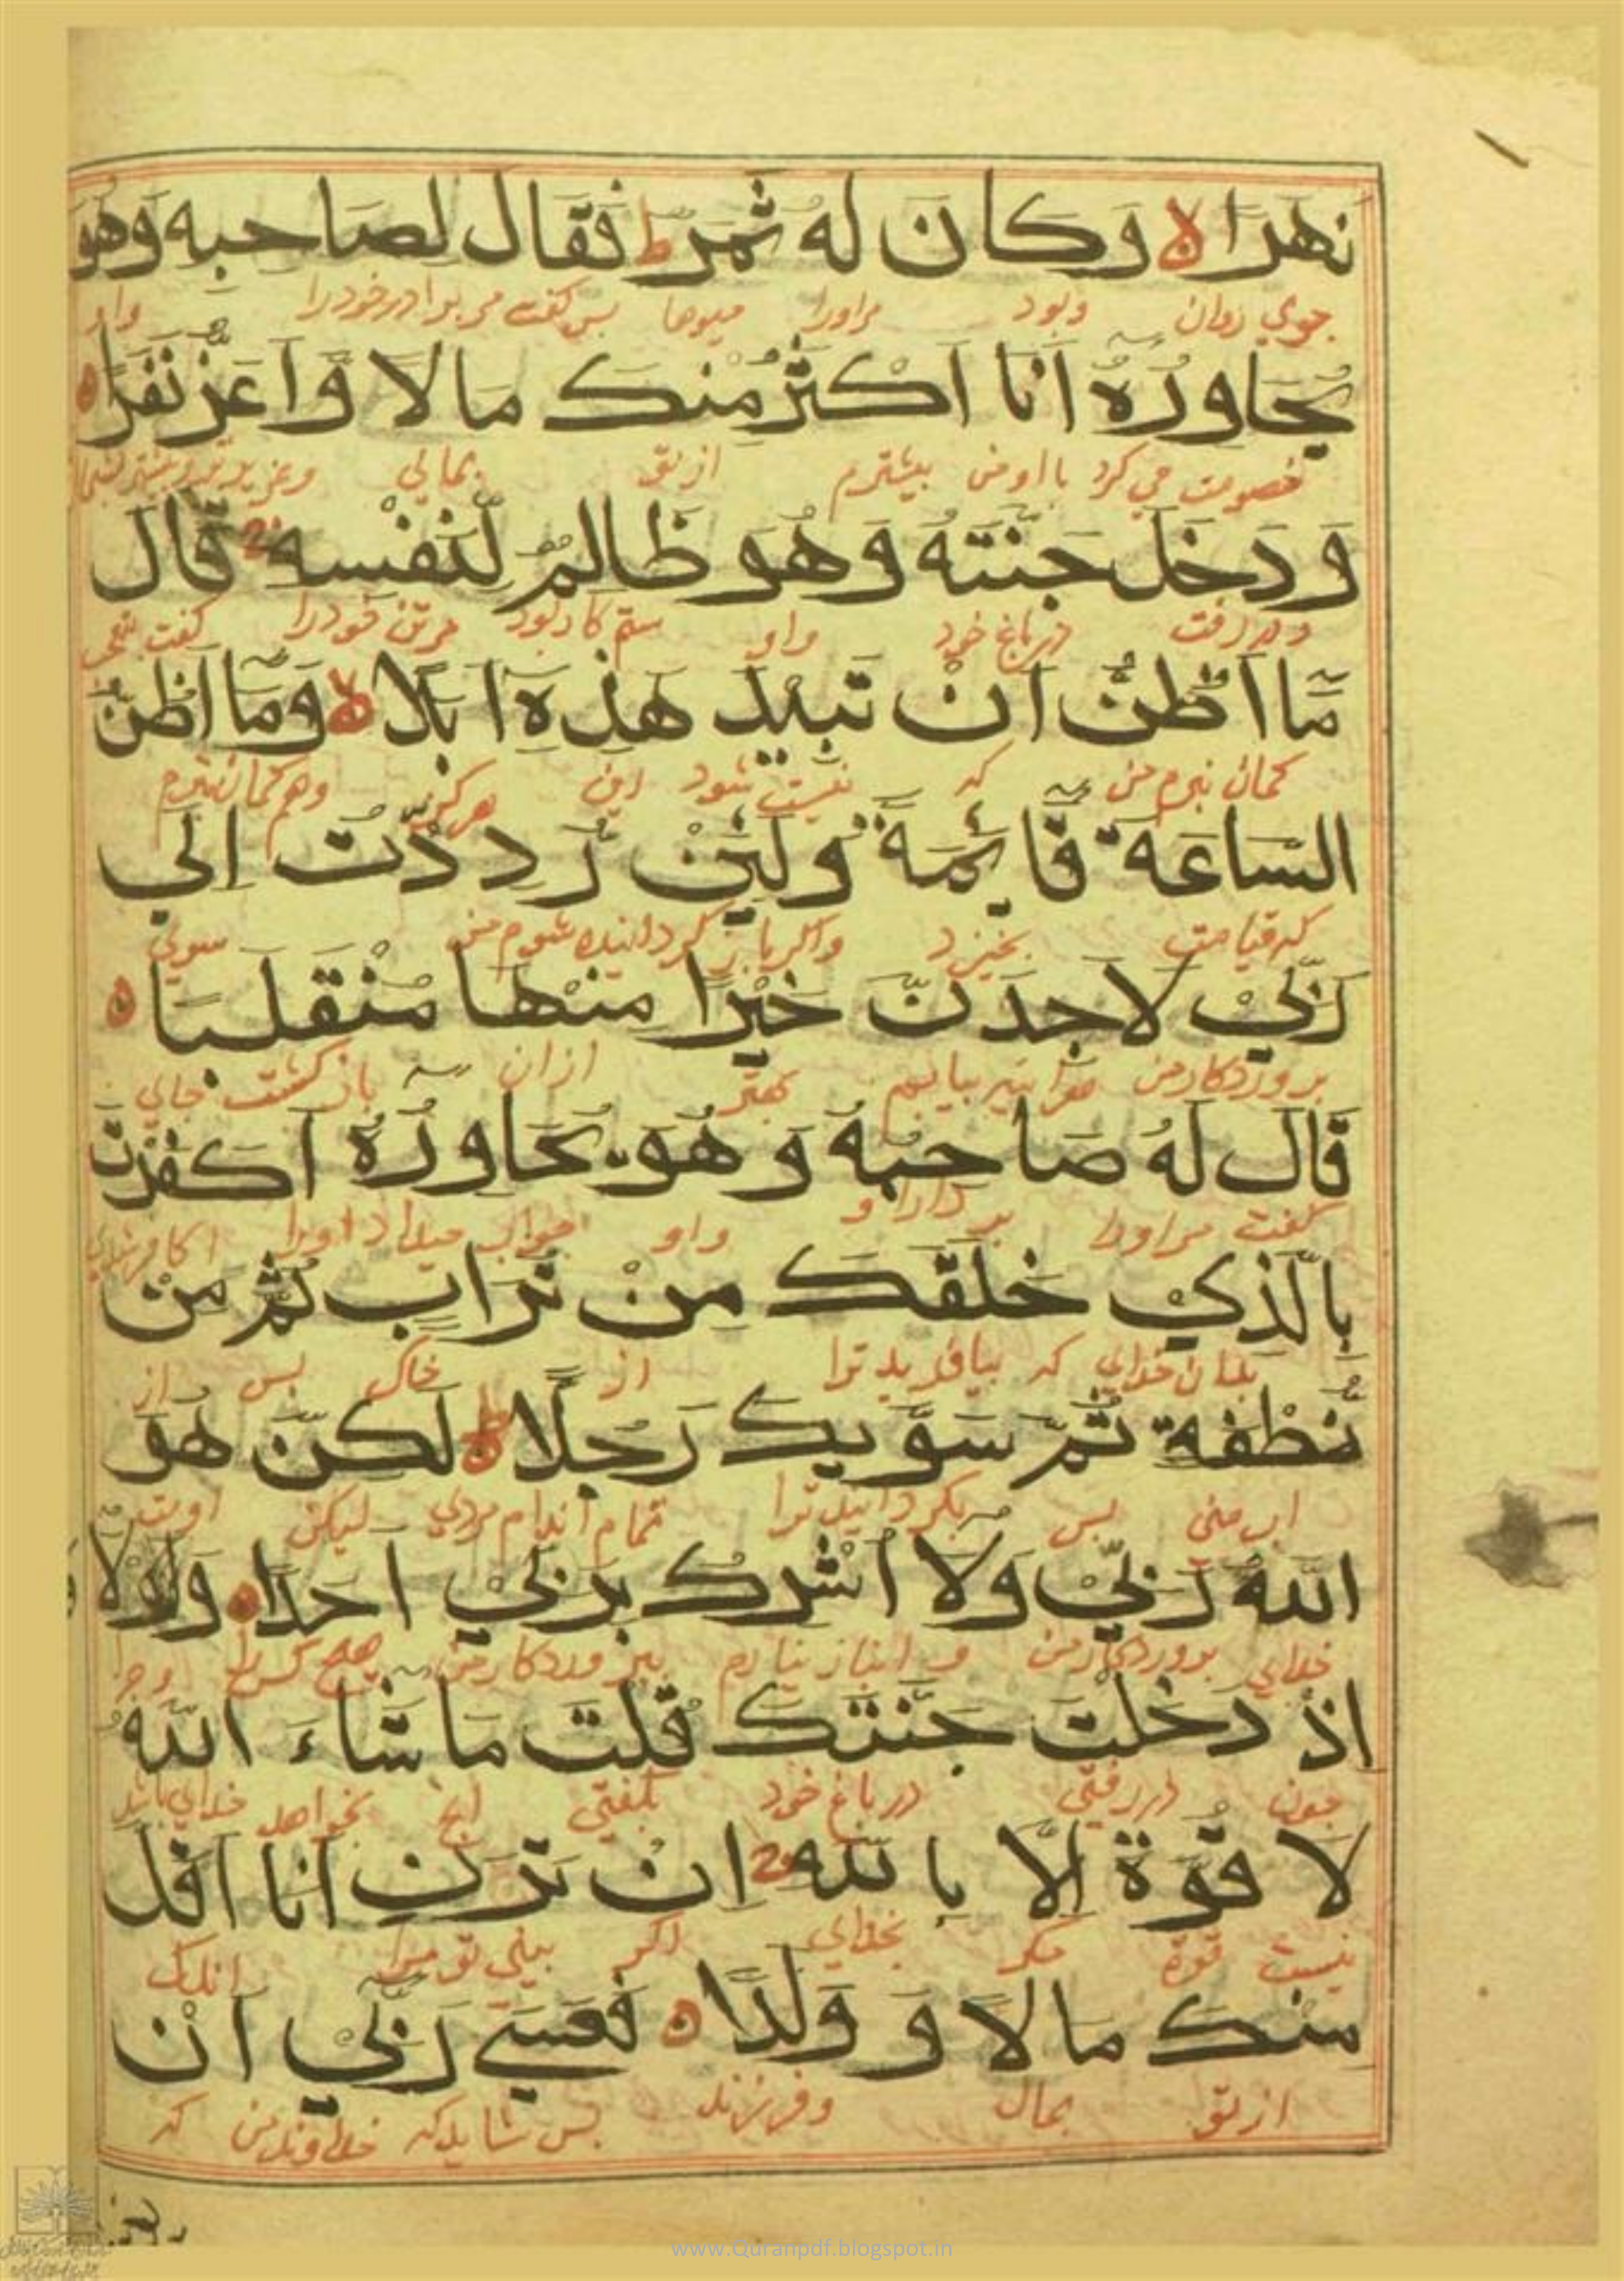 نهرا لا وكان له ثمر ط فقال لصاحبه وهو
جوي روان وبود مراورا ميوها بس كفت مر برادر خودرا واو
يحاوره انا اكثر منك مالا واعز نفرا ه
خصومت مي كرد بااو من بيشترم از تو بمالي
ودخل جنته وهو ظالم لنفسه قال
ودر رفت در باغ خود واو ستم كار بود مر تن خودرا كفت
ما اظن ان تبيد هذه ابدا لا وما اظن
كمان نبرم من كه نيست شود اين هركز وهم كمان نبرم
الساعة قائمة ولئن رددت الي
كه قيامت بخيزد واكر باز كردانيده شوم من سوي
ربي لاجدن خيرا منها منقلبا ه
بروردكار من بيابم بهتر ازان باز كشت جاي
قال له صاحبه وهو يحاوره اكفرت
كفت مراورا واو جواب ميداد اورا
بالذي خلقك من تراب ثم من
بدان خداي كه بيافريد ترا از خاك بس از
نطفة ثم سويك رجلا ط لكن هو
اب مني بس بكردانيد ترا تمام اندام مردي ليكن اوست
الله ربي ولا اشرك بربي احدا ه ولولا
خداي بروردكار من و انباز نيارم ببروردكار من هيچ كس را
اذ دخلت جنتك قلت ما شاء الله
جون در رفتي در باغ خود بكفتي انج بخواهد خداي باشد
لا قوة الا بالله ان ترن انا اقل
نيست قوة مكر بخداي اكر بيني تو مرا اندك
منك مالا و ولدا ه فعسي ربي ان
از تو بمال وفرزند بس شايد كه خداوند من كه
www.Quranpdf.blogspot.in